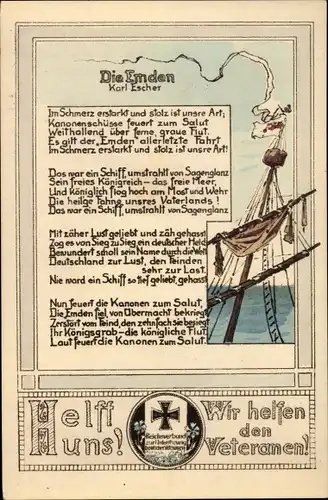 Die Emden
Karl Escher
Im Schmerz erstarkt und stolz ist unsre Art;
Kanonenschüsse feuert zum Salut
Weithallend über ferne, graue Flut.
Es gilt der „Emden" allerletzte Fahrt
Im Schmerz erstarkt und stolz ist unsre Art!
Das war ein Schiff, umstrahlt von Sagenglanz
Sein freies Königreich – das freie Meer,
Und Königlich flog hoch am Mast und Wehr
Die heilge Fahne unsres Vaterlands!
Das war ein Schiff, umstrahlt von Sagenglanz
Mit zäher Lust geliebt und zäh gehasst
Zog es von Sieg zu Sieg ein deutscher Held
Bewundert scholl sein Name durch die Welt
Deutschland zur Lust, den Feinden
sehr zur Last.
Nie ward ein Schiff so tief geliebt, gehasst
Nun feuert die Kanonen zum Salut,
Die Emden fiel, von Übermacht bekriegt
Zerstört vom Feind, den zehnfach sie besiegt
Ihr Königsgrab – die königliche Flut.
Laut feuert die Kanonen zum Salut.
Helft uns!
Reichsverband
zur Unterstützung
Wir helfen
den
Veteranen!